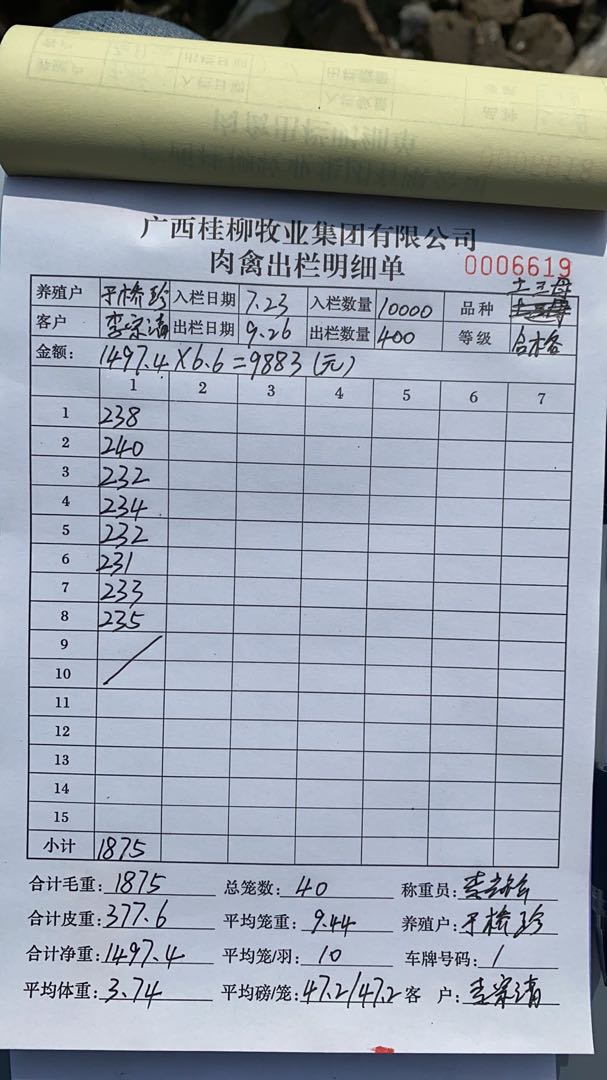 广西桂柳牧业集团有限公司
肉禽出栏明细单 0006619
土三母
养殖户 入栏日期 7.23 入栏数量 10000 品种
客户 李宗清 出栏日期 9.26 出栏数量 400 等级 合格
金额: 1497.4×6.6=9883(元)
1 2 3 4 5 6 7
1 238
2 240
3 232
4 234
5 232
6 231
7 233
8 235
9
10
11
12
13
14
15
小计 1875
合计毛重: 1875 总笼数: 40 称重员:
合计皮重: 377.6 平均笼重: 9.44 养殖户:
合计净重: 1497.4 平均笼/羽: 10 车牌号码: /
平均体重: 3.74 平均磅/笼: 47.2/47.2 客 户: 李宗清